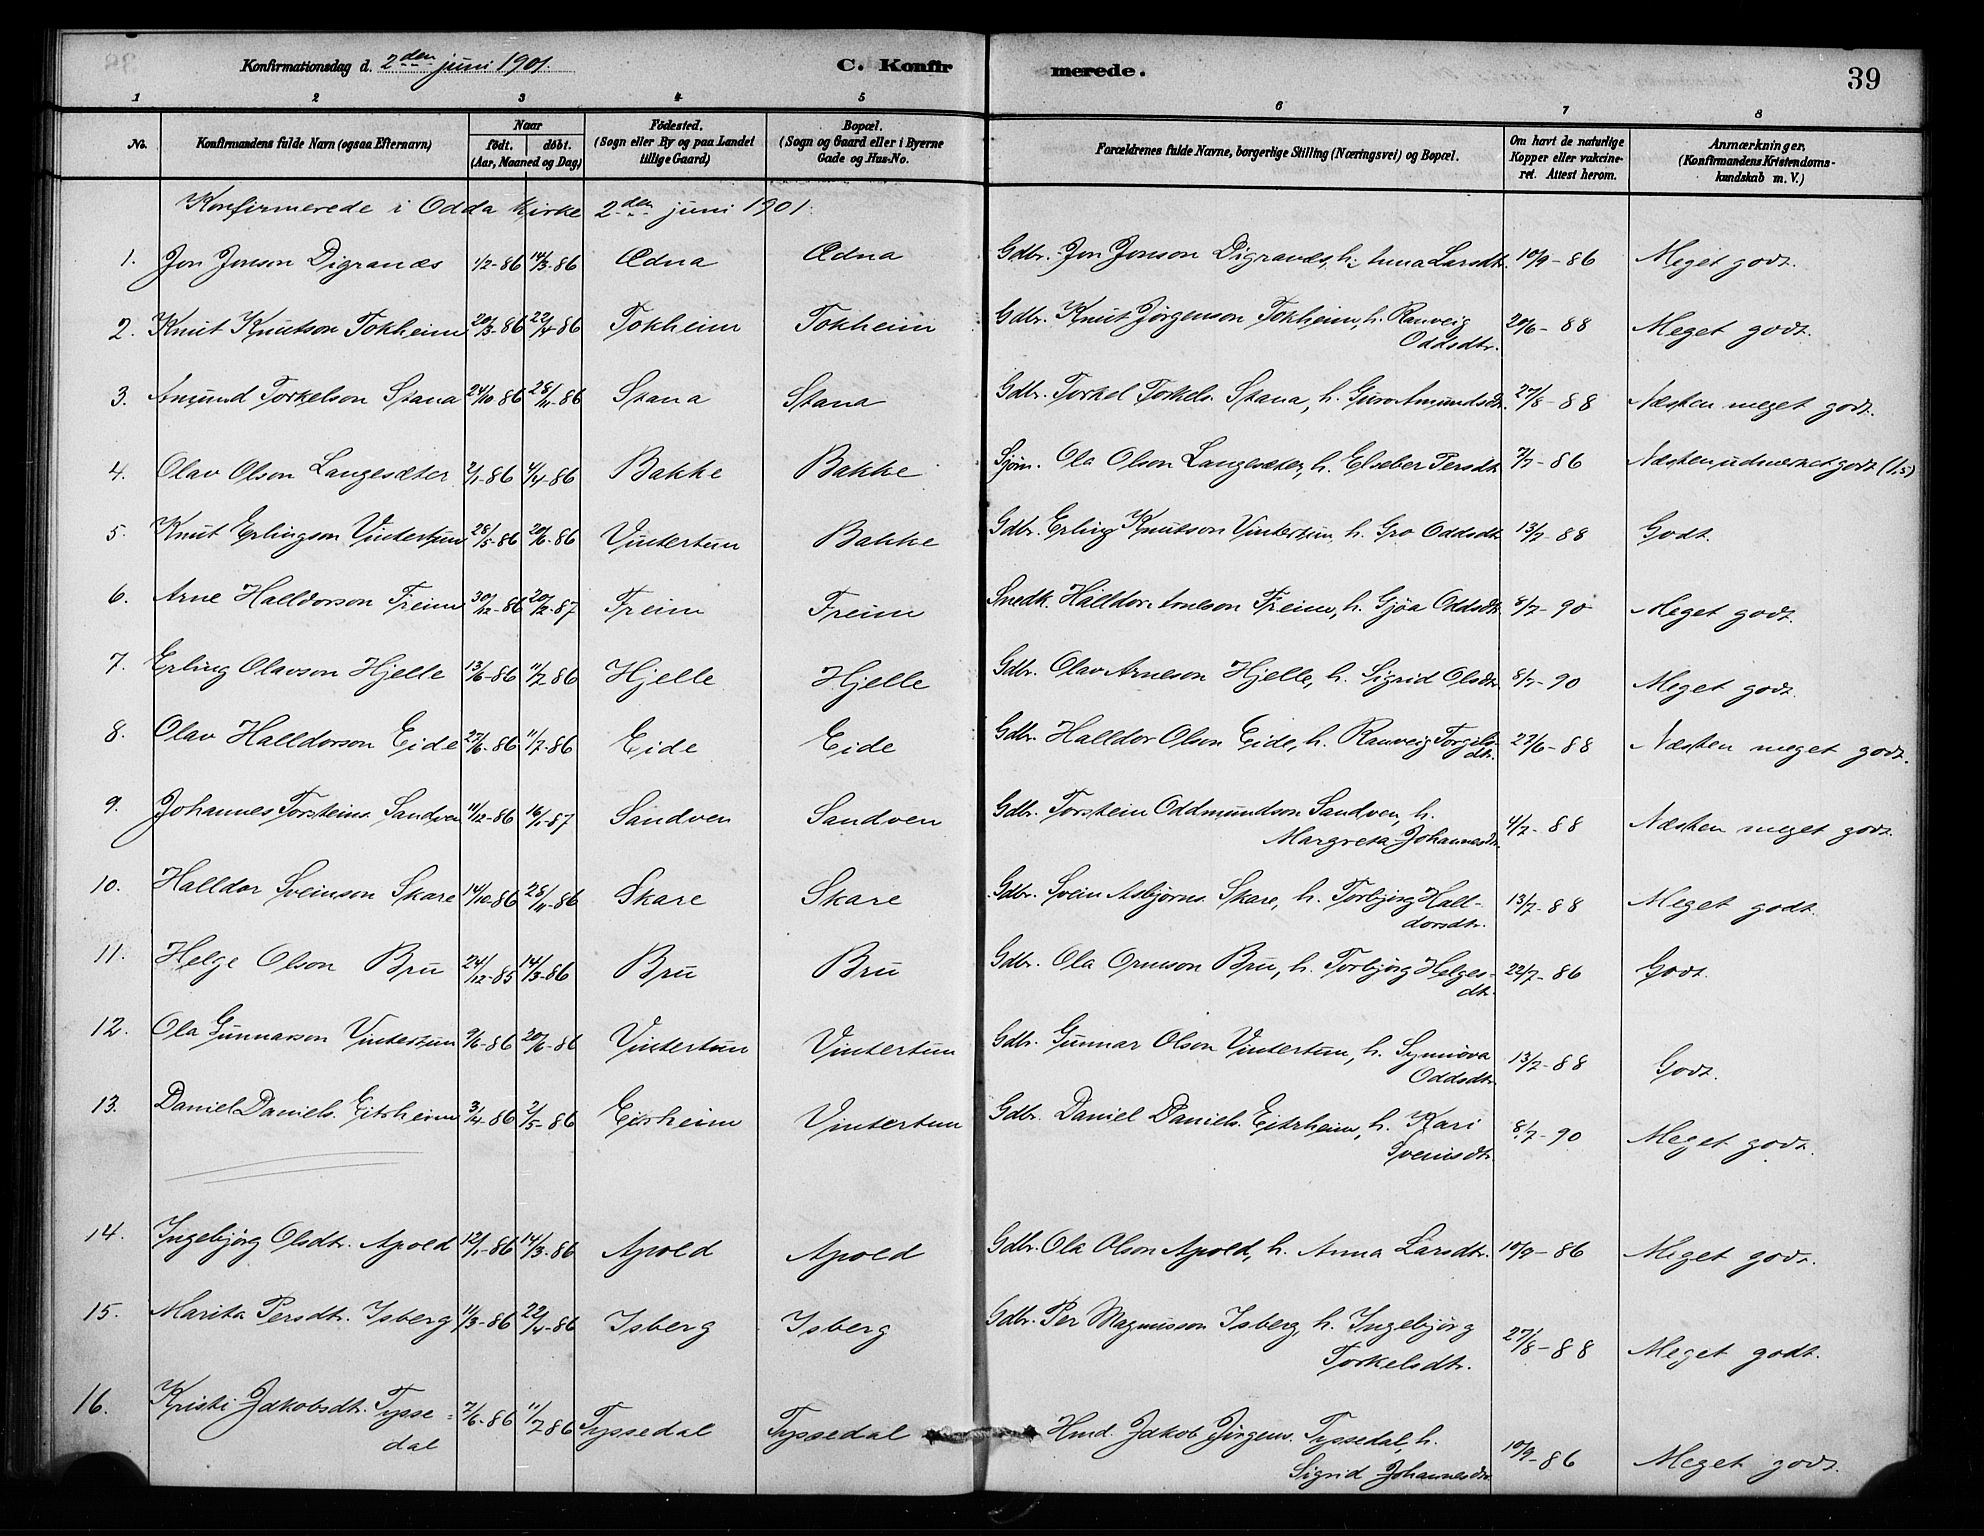 Konfirmationsdag d. 2den juni 1901. C. Konfirmerede. 39
1 2 3 4 5 6 7 8
No. Konfirmandens fulde Navn (ogsaa Efternavn) Naar født. døbt. (Aar, Maaned og Dag) Fødested. (Sogn eller By og paa Landet tillige Gaard) Bopæl. (Sogn og Gaard eller i Byerne Gade og Hus-No. Forældrenes fulde Navne, borgerlige Stilling (Næringsvei) og Bopæl. Om havt de naturlige Kopper eller vakcineret. Attest herom. Anmærkninger. (Konfirmandens Kristendomskundskab m. V.)
Konfirmerede i Odda kirke 2den juni 1901.
1. Jon Jonson Digranæs 1/2-86 14/3-86 Ædna Ædna Gdbr. Jon Jonson Digranæs, h. Anna Larsdtr. 10/9-86 Meget godt.
2. Knut Knutson Tokheim 20/3-86 22/4-86 Tokheim Tokheim Gdbr. Knut Jørgenson Tokheim, h. Ranveig
Oddsdtr. 20/6-88 Meget godt.
3. Amund Torkelson Stana 24/10-86 28/11-86 Stana Stana Gdbr. Torkel Torkels. Stana, h. Guro Amundsdtr. 27/8-88 Næsten meget godt.
4. Olav Olson Langesæter 2/1-86 4/4-86 Bakke Bakke Sjøm. Ola Olson Langesæter, h. Elseber Persdtr. 7/7-86 Næsten udmærket godt (1,5)
5. Knut Erlingson Vintertun 28/5-86 20/6-86 Vintertun Bakke Gdbr. Erling Knutson Vintertun, h. Gro Oddsdtr. 13/7-88 Godt.
6. Arne Halldorson Freim 30/12-86 20/2-87 Freim Freim Snedk. Halldor Arneson Freim, h. Gjøa Oddsdtr. 8/7-90 Meget godt.
7. Erling Olavson Hjelle 13/6-86 11/7 86 Hjelle Hjelle Gdbr. Olav Arneson Hjelle, h. Sigrid Olsdtr. 8/7-90 Meget godt.
8. Olav Halldorson Eide 27/6-86 11/7-86 Eide Eide Gdbr. Halldor Olson Eide, h. Ranveig Torgils-
dtr. 27/6-88 Næsten meget godt.
9. Johannes Torsteins. Sandven 11/12-86 16/1-87 Sandven Sandven Gdbr. Torstein Oddmundson Sandven, h.
Margreta Johannesdtr. 4/7-88 Næsten meget godt.
10. Halldor Sveinson Skare 14/10-86 28/11-86 Skare Skare Gdbr. Svein Asbjørns. Skare, h. Torbjørg Hall-
dorsdtr. 13/7-88 Meget godt.
11. Helge Olson Bru 24/12-85 14/3-86 Bru Bru Gdbr. Ola Ormson Bru, h. Torbjørg Helges-
dtr. 22/7-86 Godt.
12. Ola Gunnarson Vintertun 9/6-86 20/6-86 Vintertun Vintertun Gdbr. Gunnar Olson Vintertun, h. Synnøva
Oddsdtr. 13/7-88 Godt.
13. Daniel Daniels. Eitrheim 3/4-86 2/5-86 Eitrheim Vintertun Gdbr. Daniel Daniels. Eitrheim, h. Kari
Sveinsdtr. 8/7-90 Meget godt.
14. Ingebjørg Olsdtr. Apold 12/1-86 14/3-86 Apold Apold Gdbr. Ola Olson Apold, h. Anna Larsdtr. 10/9-86 Meget godt.
15. Marita Persdtr. Isberg 11/3-86 22/4-86 Isberg Isberg Gdbr. Per Magnusson Isberg, h. Ingebjørg
Torkelsdtr. 27/8-88 Meget godt.
16. Kristi Jakobsdtr. Tysse-
dal 7/6-86 11/7 86 Tyssedal Tyssedal Hmd. Jakob Jørgens. Tyssedal, h.
Sigrid Johannesdtr. 10/9-86 Meget godt.